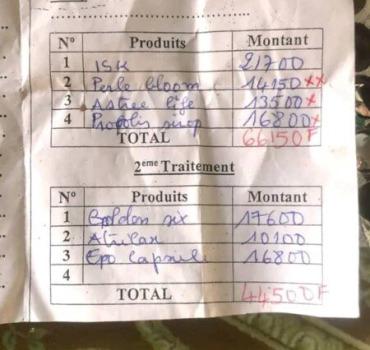 N° Produits Montant
1 ISK 21700
2 Perle bloom 14150 xx
3 Astree life 13500 x
4 Propolis sirop 16800 x
TOTAL 66150F
2eme Traitement
N° Produits Montant
1 Goldon six 17600
2 10100
3 Epo Capsule 16800
4
TOTAL 44500F